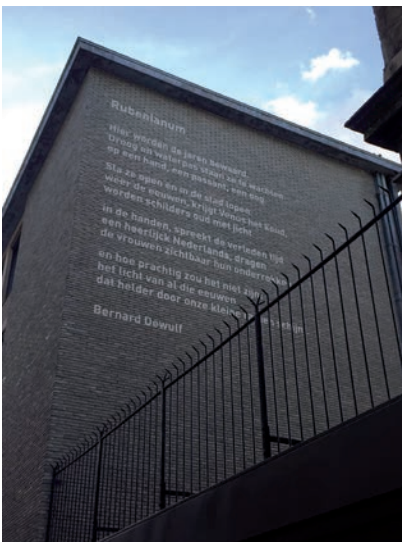 Rubenianum
Hier worden de jaren bewaard.
Droog en waterpas staan ze te wachten
op een hand, een passant, een oog.
Sla ze open en in de stad lopen
weer de eeuwen, krijgt Venus het koud,
worden schilders oud met licht
in de handen, spreekt de verleden tijd
een heerlijck Nederlands, dragen
de vrouwen zichtbaar hun onderrokken
en hoe prachtig zou het niet zijn:
het licht van al die eeuwen
dat helder door onze kleine schijn
Bernard Dewulf